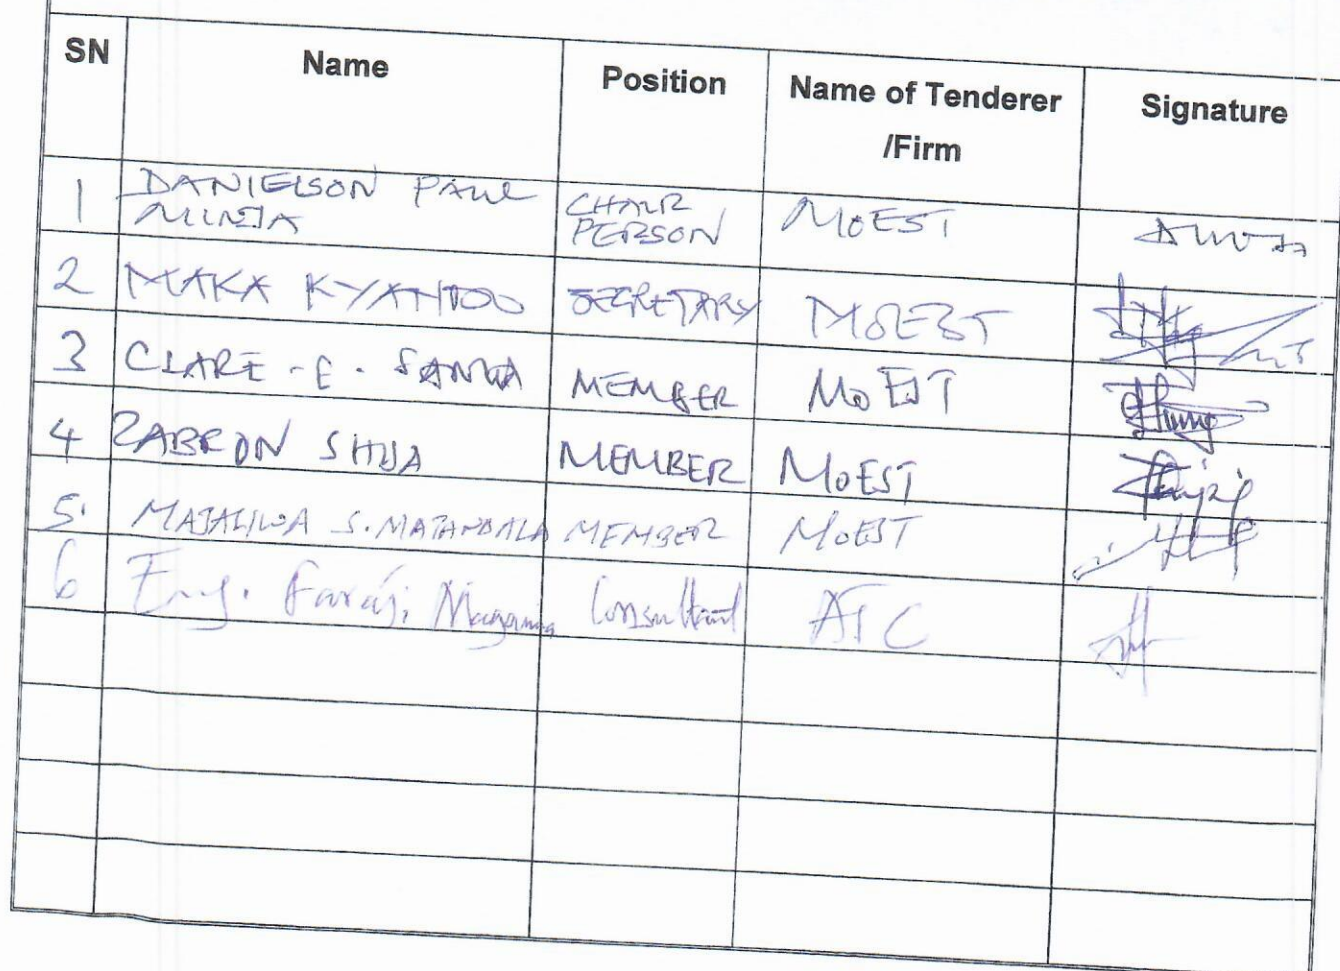 SN Name Position Name of Tenderer /Firm Signature
1 DANIELSON PAUL MINJA CHAIR PERSON MOEST
2 MAKA KYANDO SECRETARY MOEST
3 CLARE - E. SANGA MEMBER MoEST
4 ZABRON SHIJA MEMBER MOEST
5. MAJALIWA S. MATANDALA MEMBER MOEST
6 Eng. Faraji Magania Consultant ATC